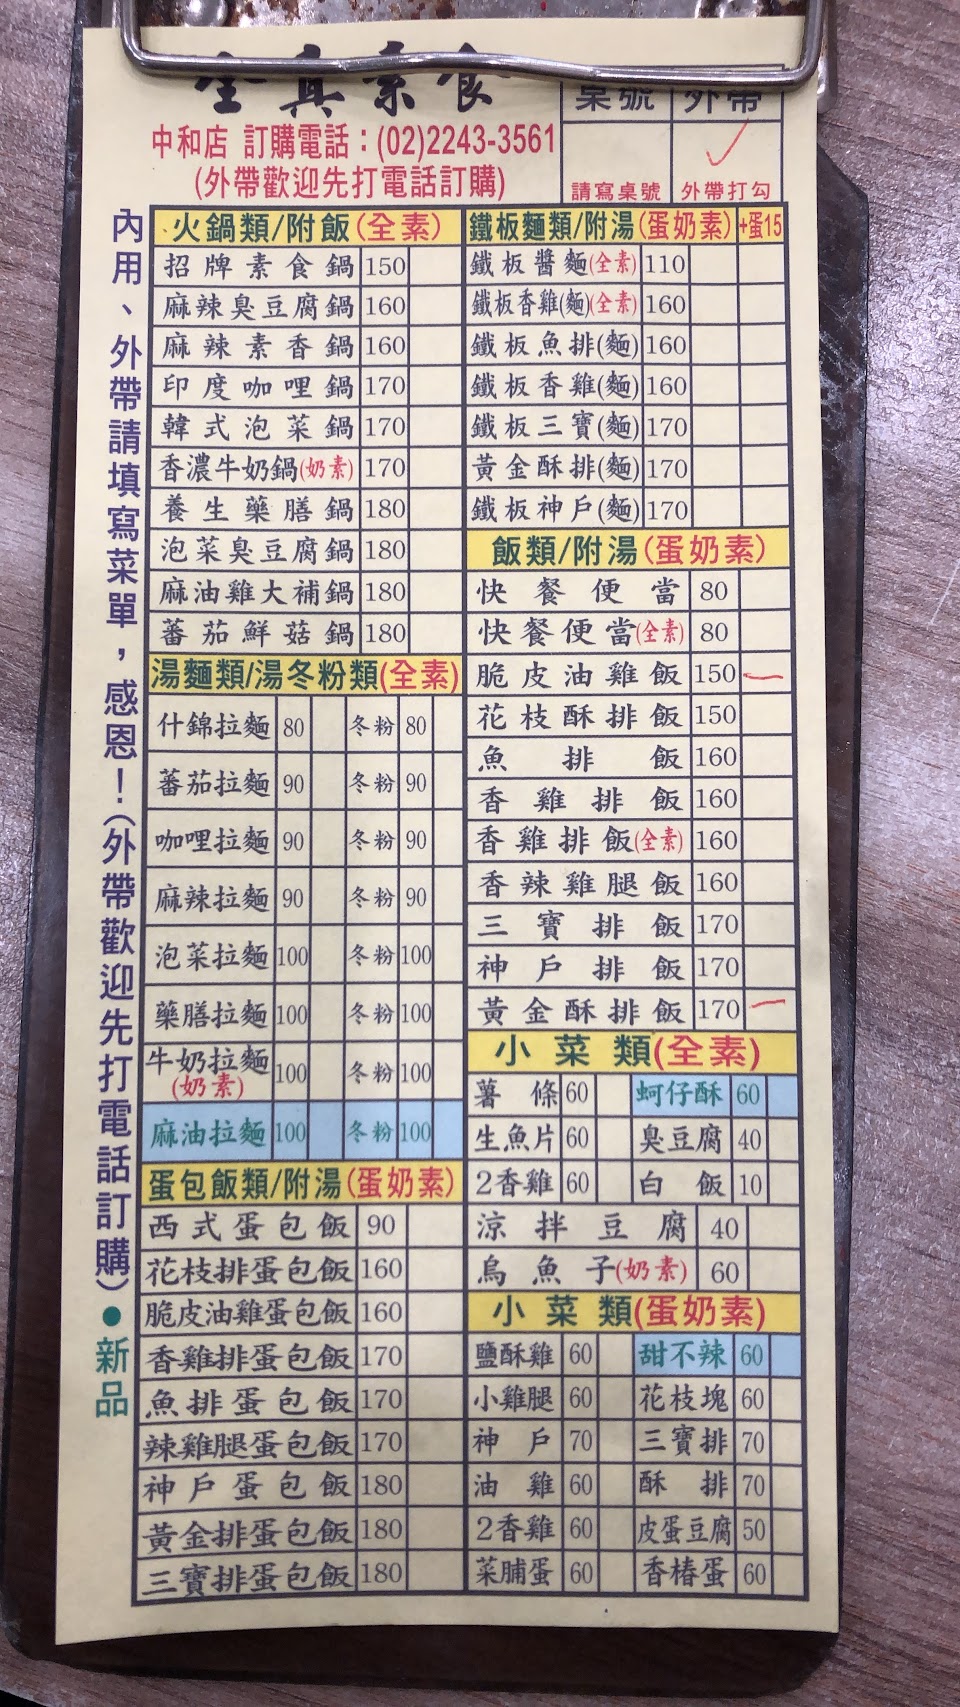 全真素食
桌號 外帶
中和店 訂購電話：(02)2243-3561
(外帶歡迎先打電話訂購)
請寫桌號 外帶打勾
內用、外帶請填寫菜單，感恩！(外帶歡迎先打電話訂購)
●新品
火鍋類/附飯(全素)
招牌素食鍋 150
麻辣臭豆腐鍋 160
麻辣素香鍋 160
印度咖哩鍋 170
韓式泡菜鍋 170
香濃牛奶鍋(奶素) 170
養生藥膳鍋 180
泡菜臭豆腐鍋 180
麻油雞大補鍋 180
蕃茄鮮菇鍋 180
湯麵類/湯冬粉類(全素)
什錦拉麵 80 冬粉 80
蕃茄拉麵 90 冬粉 90
咖哩拉麵 90 冬粉 90
麻辣拉麵 90 冬粉 90
泡菜拉麵 100 冬粉 100
藥膳拉麵 100 冬粉 100
牛奶拉麵(奶素) 100 冬粉 100
麻油拉麵 100 冬粉 100
蛋包飯類/附湯(蛋奶素)
西式蛋包飯 90
花枝排蛋包飯 160
脆皮油雞蛋包飯 160
香雞排蛋包飯 170
魚排蛋包飯 170
辣雞腿蛋包飯 170
神戶蛋包飯 180
黃金排蛋包飯 180
三寶排蛋包飯 180
鐵板麵類/附湯(蛋奶素) +蛋15
鐵板醬麵(全素) 110
鐵板香雞(麵)(全素) 160
鐵板魚排(麵) 160
鐵板香雞(麵) 160
鐵板三寶(麵) 170
黃金酥排(麵) 170
鐵板神戶(麵) 170
飯類/附湯(蛋奶素)
快餐便當 80
快餐便當(全素) 80
脆皮油雞飯 150
花枝酥排飯 150
魚排飯 160
香雞排飯 160
香雞排飯(全素) 160
香辣雞腿飯 160
三寶排飯 170
神戶排飯 170
黃金酥排飯 170
小菜類(全素)
薯條 60 蚵仔酥 60
生魚片 60 臭豆腐 40
2香雞 60 白飯 10
涼拌豆腐 40
烏魚子(奶素) 60
小菜類(蛋奶素)
鹽酥雞 60 甜不辣 60
小雞腿 60 花枝塊 60
神戶 70 三寶排 70
油雞 60 酥排 70
2香雞 60 皮蛋豆腐 50
菜脯蛋 60 香椿蛋 60